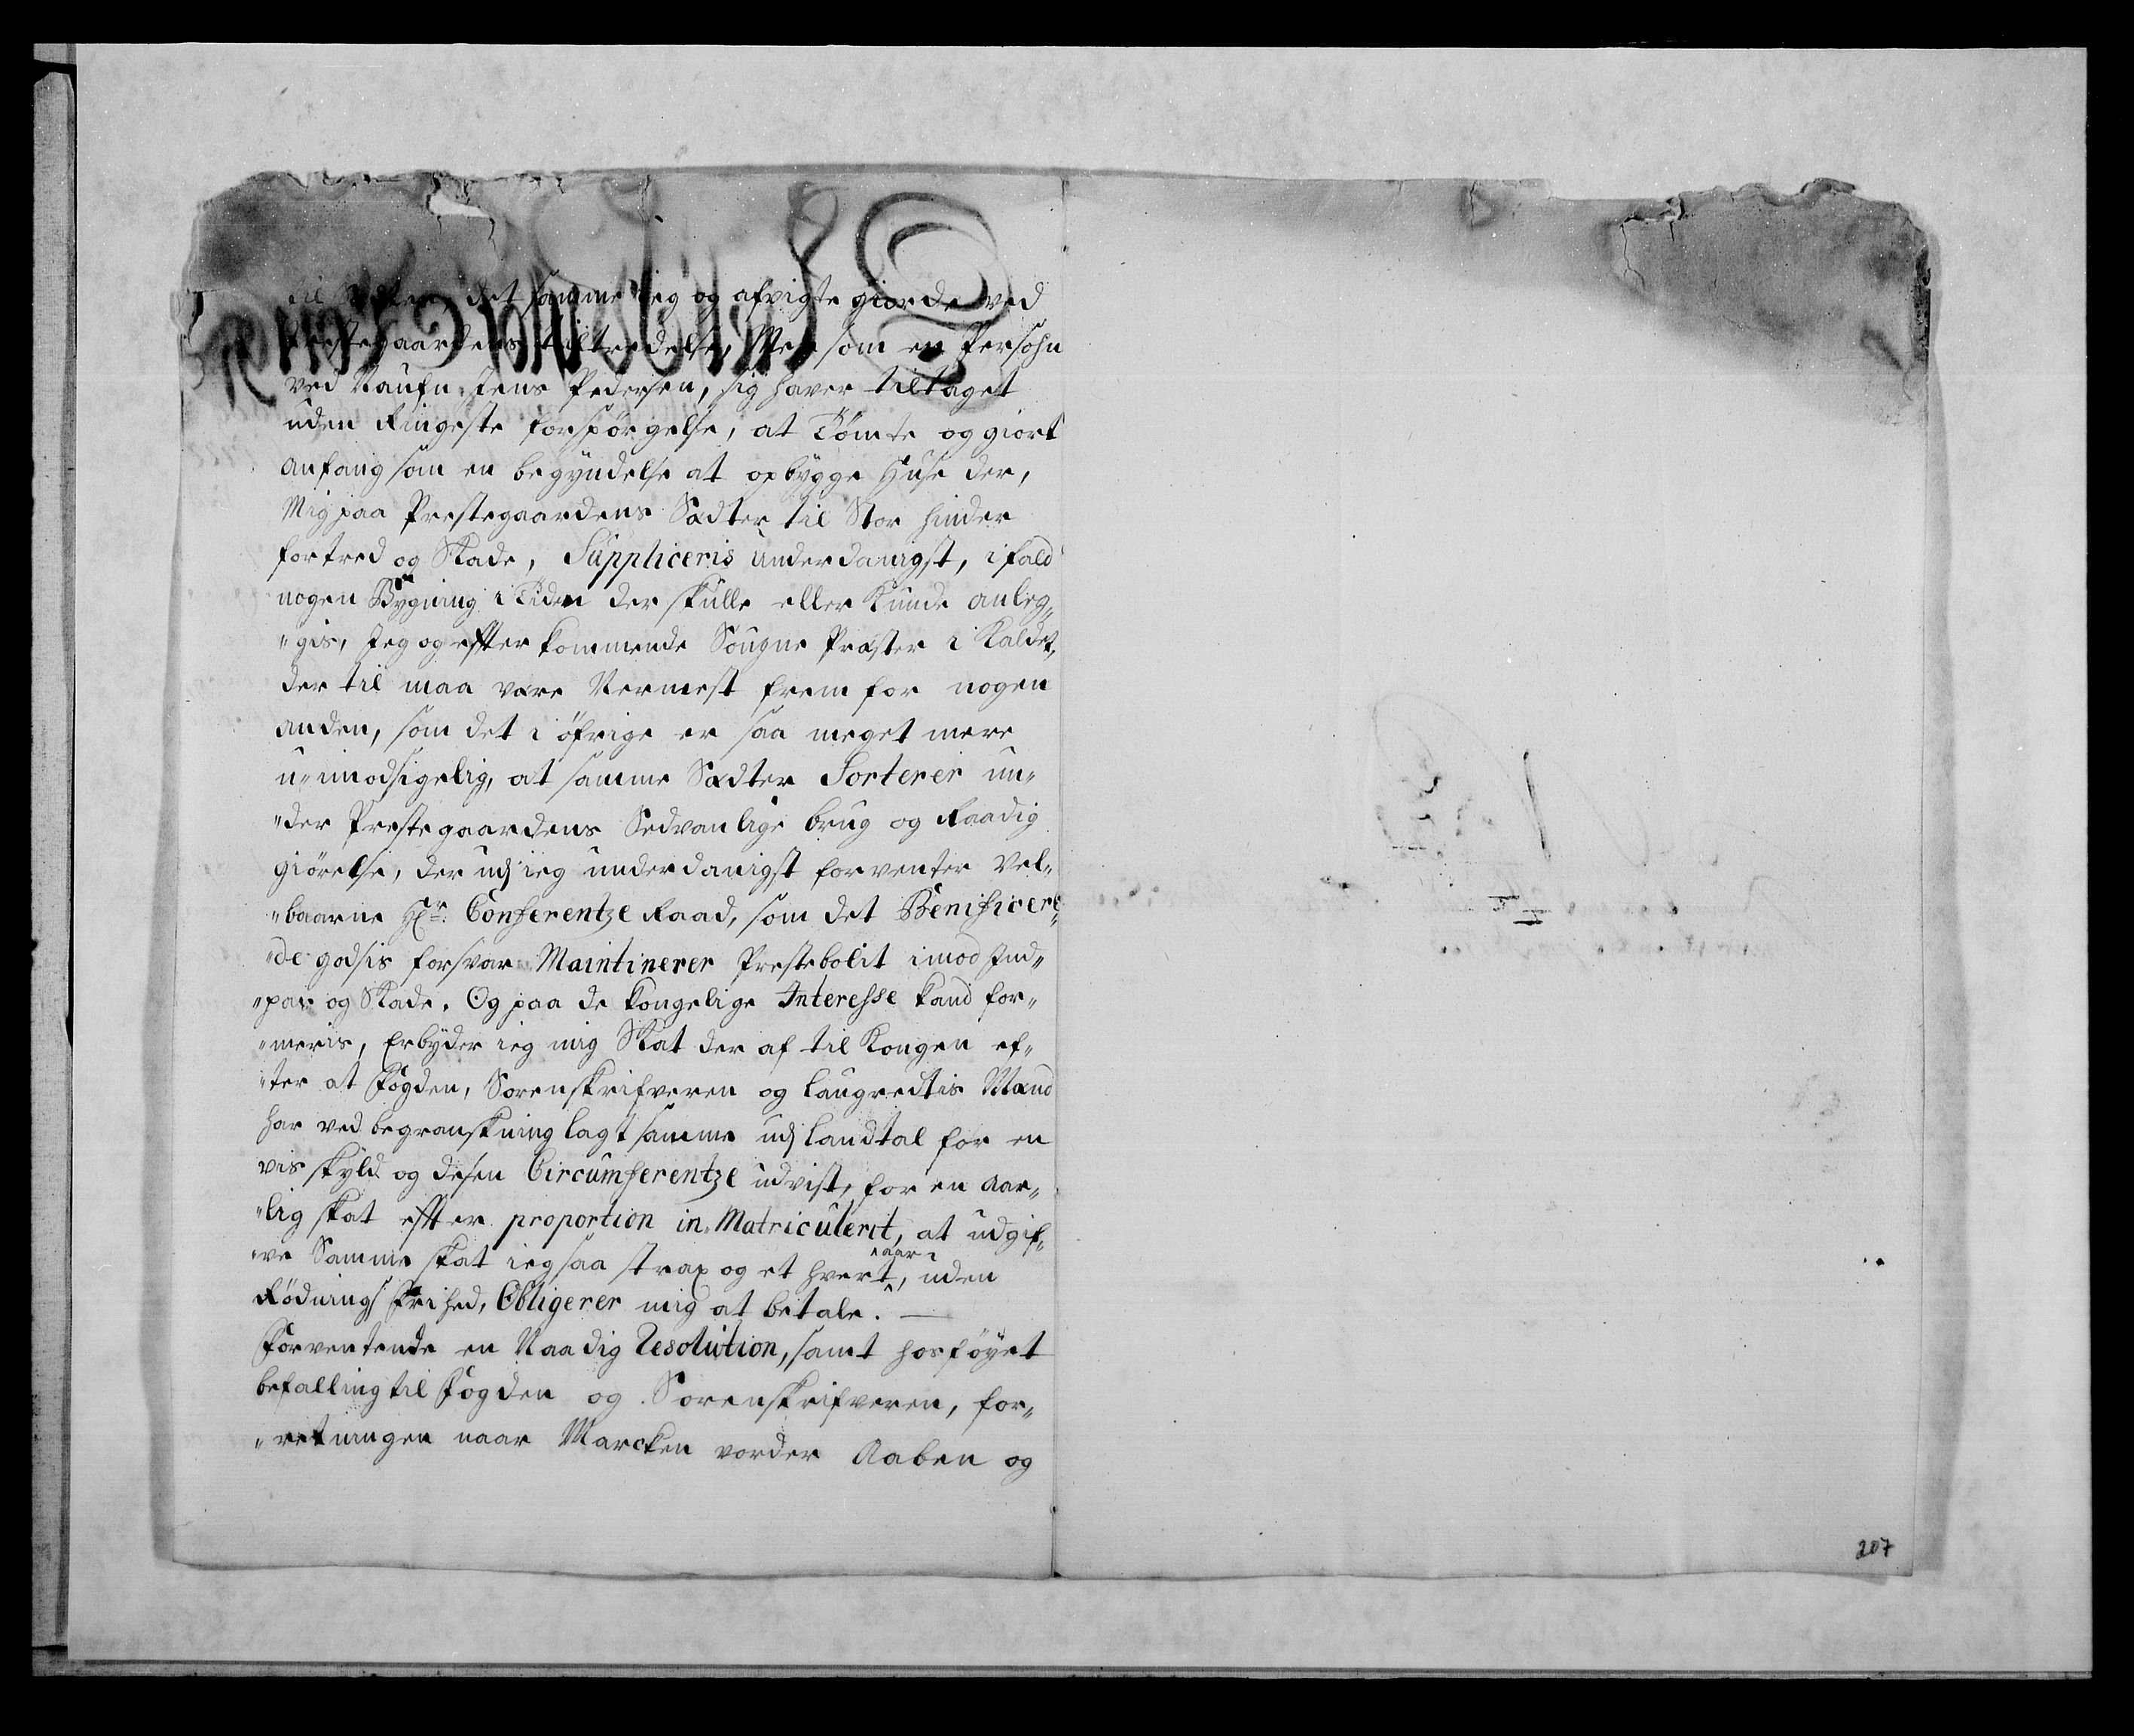 til det samme ieg og afvigte giorde ved
Prestegaardens tiltredelse, Men som en Persohn
ved Naufn Jens Pedersen, sig haver tiltaget
uden Ringeste forspörgelse, at Tömte og giort
anfang som en begyndelse at opbygge Huse der,
Mig paa Prestegaardens Sædter til Stor hinder
fortred og Skade, Suppliceris underdanigst, ifald
nogen Bygning i Tiden der skulle eller kunde anleg„
„gis, Jeg og effterkommende Sougne Præster i Kaldet,
der til maa være Nermest frem for nogen
anden, som det i öfrige er saa meget mere
u„imodsigelig, at samme Sædter Sorterer un„
„der Prestegaardens Sedvanlige brug og Raadig
giörelse, der udj ieg underdanigst forventer Vel„
„baarne Hr: Conferentze Raad, som det Benificere„
„de godsis forsvar Maintinerer Prestebolit imod Ind„
„pas og Skade. Og paa de kongelige Interesse kand for„
„meris, Erbyder ieg mig Skat der af til Kongen ef„
„ter at Fogden, Sorenskrifveren og Laugrettis Mænd
har ved begranskning lagt samme udj landtal for en
vis skyld og desen Circumferentze udvist, for en aar„
„lig skat effter proportion in„Matriculerit, at udgif„
„ve Samme skat ieg saa strax og et hvert aar, uden
Rödnings Frihed, Obligerer mig at betale. —
Forventende en Naadig Resolution, samt hosföyet
befalling til Fogden og Sorenskrifveren, for„
„retningen naar Marcken vorder Aaben og
207